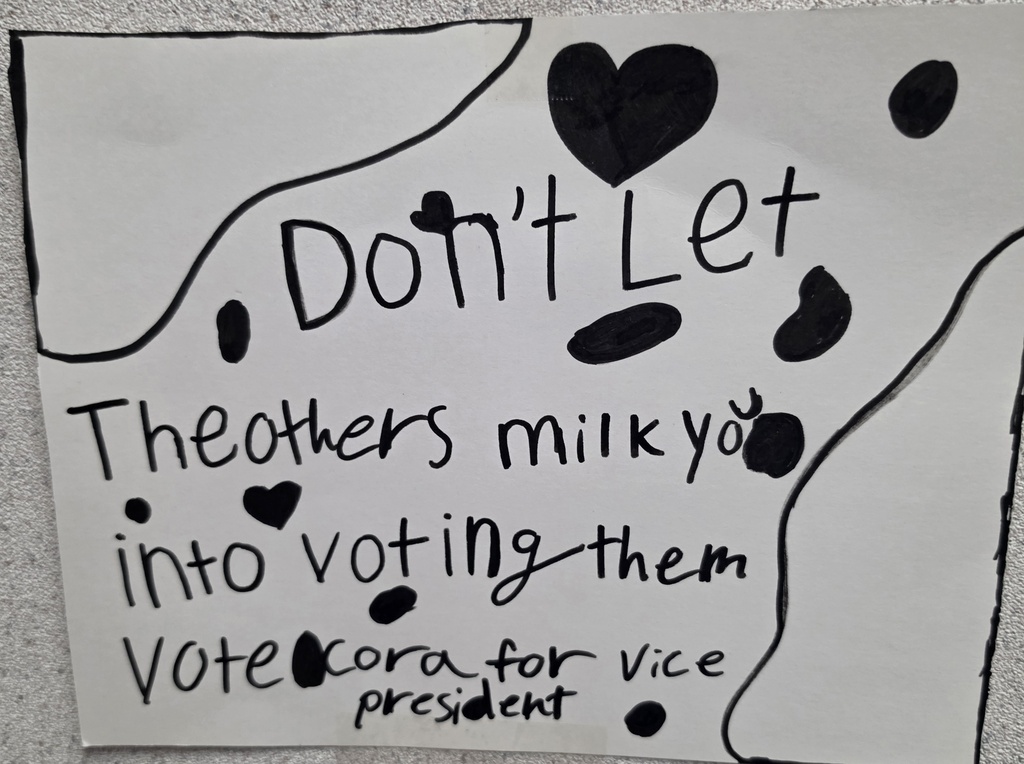 Don't Let
Theothers milk you
into voting them
Vote cora for vice
president